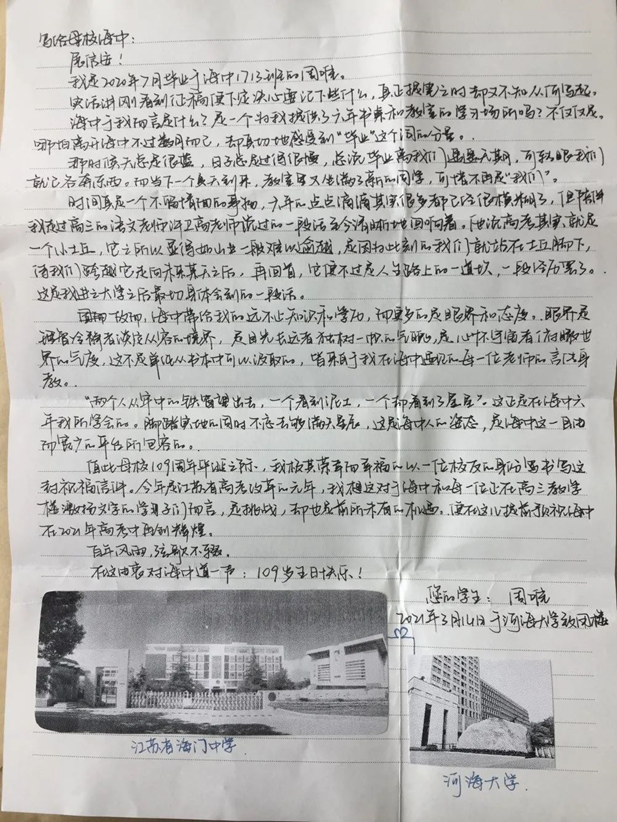 写给母校海中：
展信佳！
我是2020年7月毕业于海中1713班的周唯。
实话讲刚看到征稿便下定决心要记下些什么，真正提笔之时却又不知从何写起。
海中于我而言是什么？是一个为我提供了六年书桌和教室的学习场所吗？不仅仅是。
哪怕离开海中不过数月而已，却真切地感受到“毕业”这个词的分量。
那时候天总是很蓝，日子总是过得很慢，总说毕业离我们遥遥无期，可转眼我们
就已各奔东西。而当下一个夏天到来，教室里又坐满了新的同学，可惜不再是“我们”。
时间真是一个不留情面的事物，六年的点点滴滴其实很多都已经很模糊了，但陪伴
我走过高三的语文老师许卫高老师说过的一段话至今清晰地回响着。他说高考其实就是
一个小土丘，它之所以显得如山一般难以逾越，是因为此刻的我们就站在土丘脚下，
待我们跨越它走向未来某天之后，再回首，它便不过是人生路上的一道坎，一段经历罢了。
这是我进入大学之后最切身体会到的一段话。
因而一故而，海中带给我的远不止知识和学历，而更多的是眼界和态度。眼界是
理智冷静者淡定从容的境界，是目光长远者独树一帜的气魄，是心怀宇宙者俯瞰世
界的气度，这不是单纯从书本中可以汲取的，皆来自于我在海中遇见的每一位老师的言传身
教。
“两个人从牢中的铁窗望出去，一个看到泥土，一个却看到了星星”。这正是在海中六
年我所学会的。脚踏实地的同时不忘去够满天星辰，这是海中人的姿态，是海中这一自由
而宽广的平台所包容的。
值此母校109周年华诞之际，我极其荣幸而幸福的以一位校友的身份写书写这
封祝福信件。今年是江苏省高考改革的元年，我想这对于海中和每一位正在高三教学
楼激扬文字的学子们而言，是挑战，却也是前所未有的机遇。便在这儿提前预祝海中
在2021年高考中再创辉煌。
百年风雨，弦歌不辍。
在这由衷对海中道一声：109岁生日快乐！
您的学生：周唯
2021年3月14日于河海大学致团楼
江苏省海门中学
河海大学